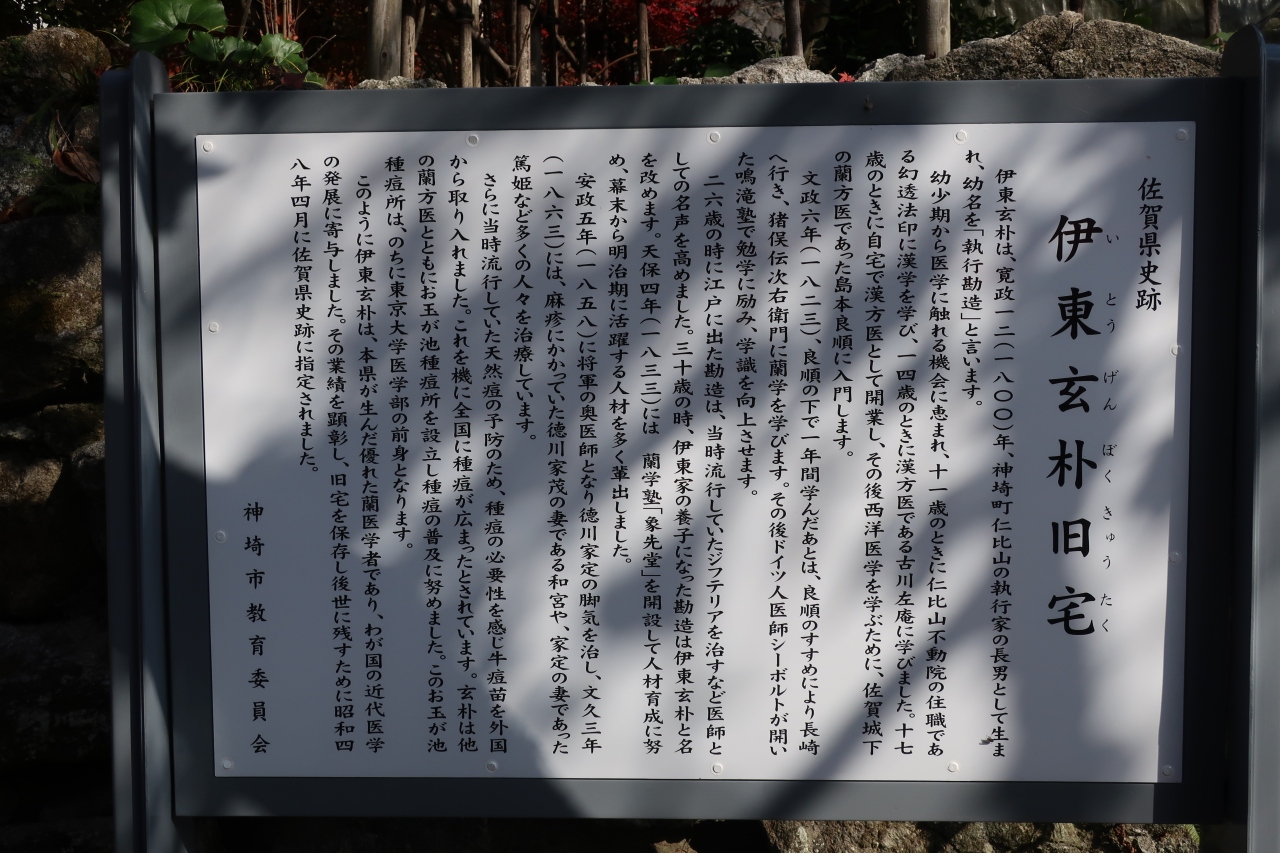 佐賀県史跡
伊東玄朴旧宅
いとうげんぼくきゅうたく
伊東玄朴は、寛政一二(一八〇〇)年、神埼町仁比山の執行家の長男として生ま
れ、幼名を「執行勘造」と言います。
幼少期から医学に触れる機会に恵まれ、十一歳のときに仁比山不動院の住職であ
る幻透法印に漢学を学び、一四歳のときに漢方医である古川左庵に学びました。十七
歳のときに自宅で漢方医として開業し、その後西洋医学を学ぶために、佐賀城下
の蘭方医であった島本良順に入門します。
文政六年(一八二三)、良順の下で一年間学んだあとは、良順のすすめにより長崎
へ行き、猪俣伝次右衛門に蘭学を学びます。その後ドイツ人医師シーボルトが開い
た鳴滝塾で勉学に励み、学識を向上させます。
二六歳の時に江戸に出た勘造は、当時流行していたジフテリアを治すなど医師と
しての名声を高めました。三十歳の時、伊東家の養子になった勘造は伊東玄朴と名
を改めます。天保四年(一八三三)には 蘭学塾「象先堂」を開設して人材育成に努
め、幕末から明治期に活躍する人材を多く輩出しました。
安政五年(一八五八)に将軍の奥医師となり徳川家定の脚気を治し、文久三年
(一八六三)には、麻疹にかかっていた徳川家茂の妻である和宮や、家定の妻であった
篤姫など多くの人々を治療しています。
さらに当時流行していた天然痘の予防のため、種痘の必要性を感じ牛痘苗を外国
から取り入れました。これを機に全国に種痘が広まったとされています。玄朴は他
の蘭方医とともにお玉が池種痘所を設立し種痘の普及に努めました。このお玉が池
種痘所は、のちに東京大学医学部の前身となります。
このように伊東玄朴は、本県が生んだ優れた蘭医学者であり、わが国の近代医学
の発展に寄与しました。その業績を顕彰し、旧宅を保存し後世に残すために昭和四
八年四月に佐賀県史跡に指定されました。
神埼市教育委員会